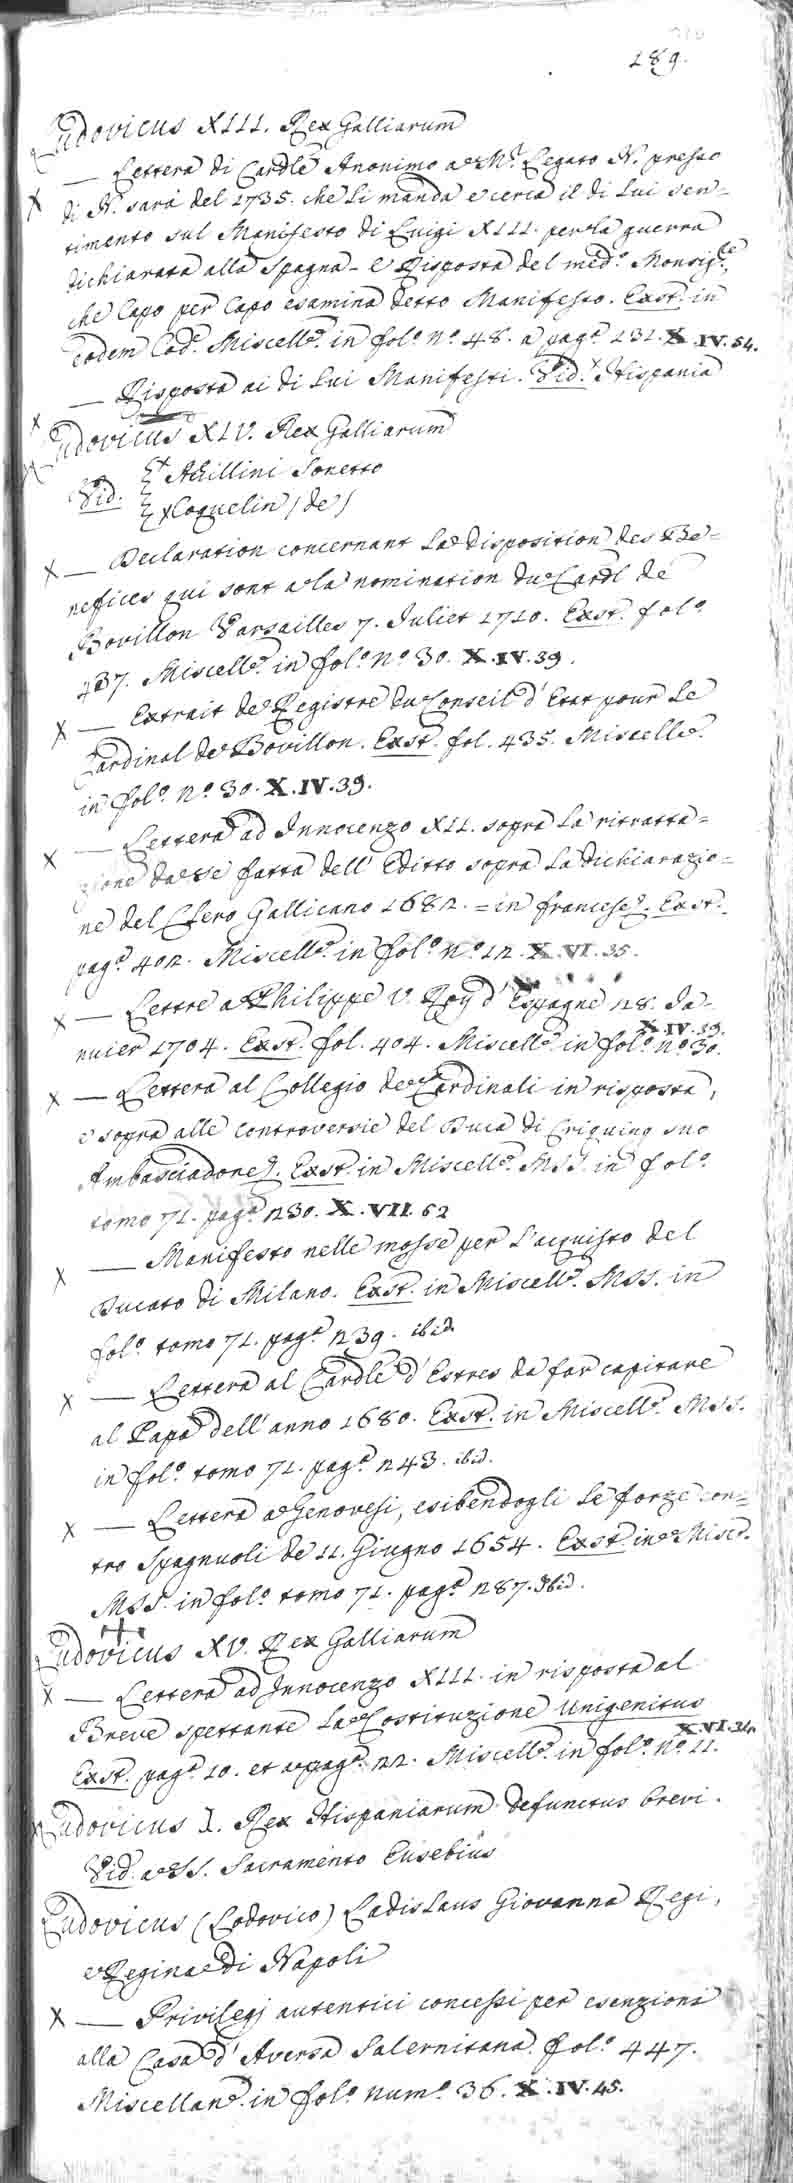 189.
Ludovicus XIII. Rex Galliarum
— Lettera di Cardle Anonimo a Mr. Legato N. presso
x di N. sarà del 1735. che li manda e cerca il di lui sen-
timento sul Manifesto di Luigi XIII. per la guerra
dichiarata alla Spagna - e Risposta del med.o Monsig.re
che Capo per Capo esamina detto Manifesto. Exst. in
eodem Cod. Miscell.o in fol.o n.o 48. a pag.a 131. X.IV.54.
x — Risposta ai di lui Manifesti. Vid. x Hispania
x Ludovicus XIV. Rex Galliarum
Vid. { x Achillini Sonetto
{ x Coquelin (de)
x — Declaration concernant la disposition des Be=
nefices qui sont a la nomination du Cardl de
Bovillon Varsailles 7. Juliet 1710. Exst. fol.o
437. Miscell.o in fol.o n.o 30. X.IV.39.
x — Extrait de Registre du Conseil d'Etat pour le
Cardinal de Bovillon. Exst. fol. 435. Miscell.o
in fol.o n.o 30. X.IV.39.
x — Lettera ad Innocenzo XII. sopra la ritratta=
zione da se fatta dell'Editto sopra la dichiarazio=
ne del Clero Gallicano 1682. = in francese. Exst.
pag.a 402. Miscell.o in fol.o n.o 12. X.VI.35.
x — Lettre a Philippe V. Roy d'Espagne 28. Ja-
nuier 1704. Exst. fol. 404. Miscell.o in fol.o n.o 30. X.IV.39.
x — Lettera al Collegio de Cardinali in risposta,
e sopra alle controversie del Duca di Criquing suo
Ambasciadore. Exst. in Miscell.o MSS. in fol.o
tomo 71. pag.a 230. X.VII.62
x — Manifesto nelle mosse per l'acquisto del
Ducato di Milano. Exst. in Miscell.o MSS. in
fol.o tomo 71. pag.a 239. ibid.
x — Lettera al Cardle d'Estres da far capitare
al Papa dell'anno 1680. Exst. in Miscell.o MSS.
in fol.o tomo 71. pag.a 243. ibid.
x — Lettera a Genovesi, esibendogli le forze con-
tro Spagnuoli de 11. Giugno 1654. Exst. in Misc.o
MSS. in fol.o tomo 71. pag.a 287. Ibid.
Ludovicus XV. Rex Galliarum
x — Lettera ad Innocenzo XIII. in risposta al
Breve spettante la Costituzione Unigenitus
Exst. pag.a 10. et a pag.a 22. Miscell.o in fol.o n.o 11. X.VI.34
x Ludovicus I. Rex Hispaniarum defunctus brevi.
Vid. a SS. Sacramento Eusebius
Ludovicus (Lodovico) Ladislaus Giovanna Regi,
e Regina di Napoli
x — Privilegj autentici concessi per esenzioni
alla Casa d'Aversa Salernitana. fol.o 447.
Miscellan.o in fol.o num.o 36. X.IV.45.